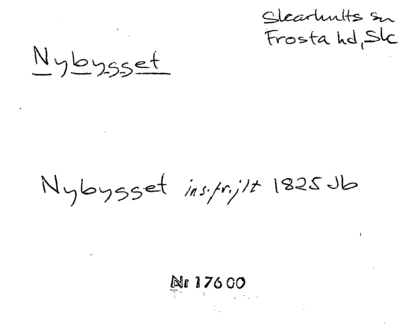 Skarhults sn
Frosta hd, Sk
Nybygget
Nybygget ins. fr. jlt 1825 Jb
Nr 17600